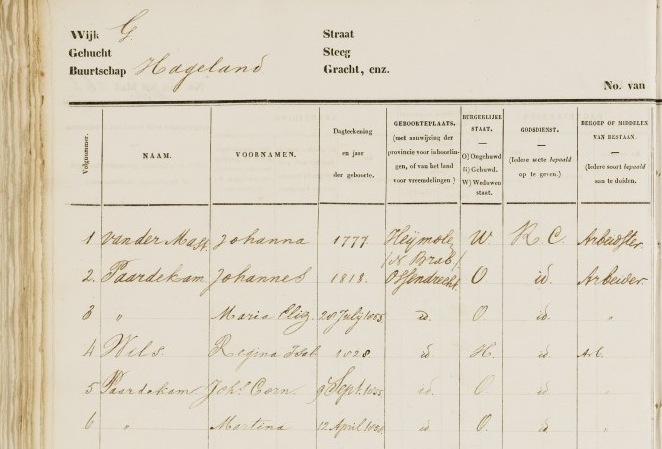 Wijk G.
Gehucht
Buurtschap Hageland
Straat
Steeg
Gracht, enz.
No. van
Volgnummer.
NAAM.
VOORNAMEN.
Dagteekening
en jaar
der geboorte.
GEBOORTEPLAATS,
(met aanwijzing der
provincie voor inboorlin-
gen, of van het land
voor vreemdelingen)
BURGERLIJKE
STAAT.
O) Ongehuwd
G) Gehuwd.
W) Weduwen
staat.
GODSDIENST.
(Iedere secte bepaald
op te geven.)
BEROEP OF MIDDELEN
VAN BESTAAN.
(Iedere soort bepaald
aan te duiden.
1 van der Mast. Johanna 1777 Heÿmole W R. C. Arbeidster
(N Brab)
2. Paardekam Johannes 1818. Ossendrecht. O id. Arbeider
3 " Maria Eliz. 28 July 1855. id. O. id. "
4 Wils. Regina Isab 1828. id H. id. Arb.
5 Paardekam Johs Corn. 9 Sept. 1855. id. O. id. "
6 " Martina 12 April 1858. id O. id. "